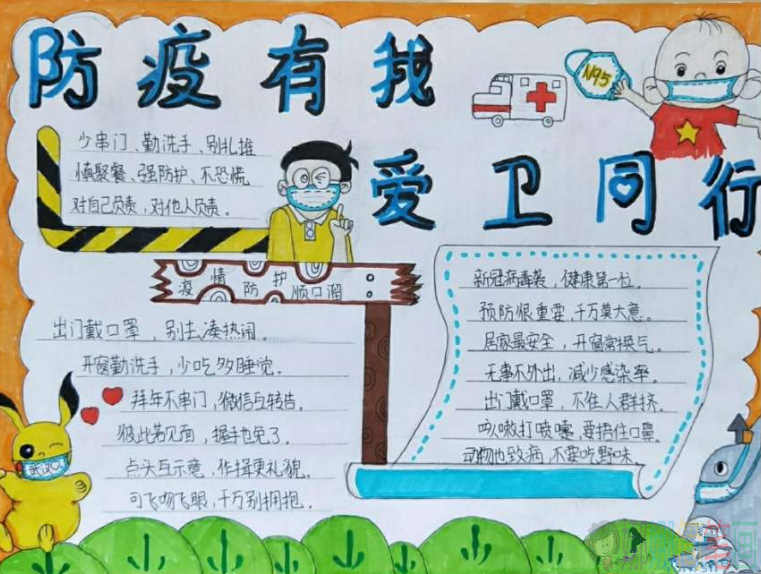 防疫有我
N95
爱卫同行
少串门、勤洗手、别扎堆
慎聚餐、强防护、不恐慌
对自己负责，对他人负责。
疫情防护顺口溜
出门戴口罩，别去凑热闹。
开窗勤洗手，少吃多睡觉。
拜年不串门，微信互转告。
彼此若见面，握手也免了。
点头互示意，作揖更礼貌。
可飞吻飞眼，千万别拥抱。
新冠病毒袭，健康第一位。
预防很重要，千万莫大意。
居家最安全，开窗常换气。
无事不外出，减少感染率。
出门戴口罩，不往人群挤。
咳嗽打喷嚏，要捂住口鼻。
动物也致病，不要吃野味